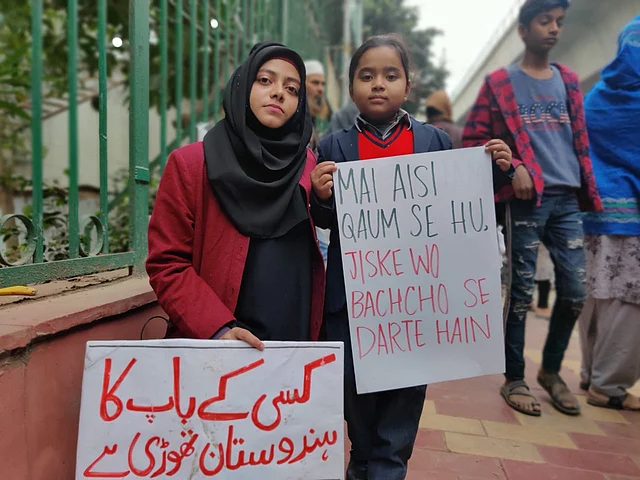 MAI AISI
QAUM SE HU.
JISKE WO
BACHCHO SE
DARTE HAIN
کسی کے باپ کا
ہندوستان تھوڑی ہے